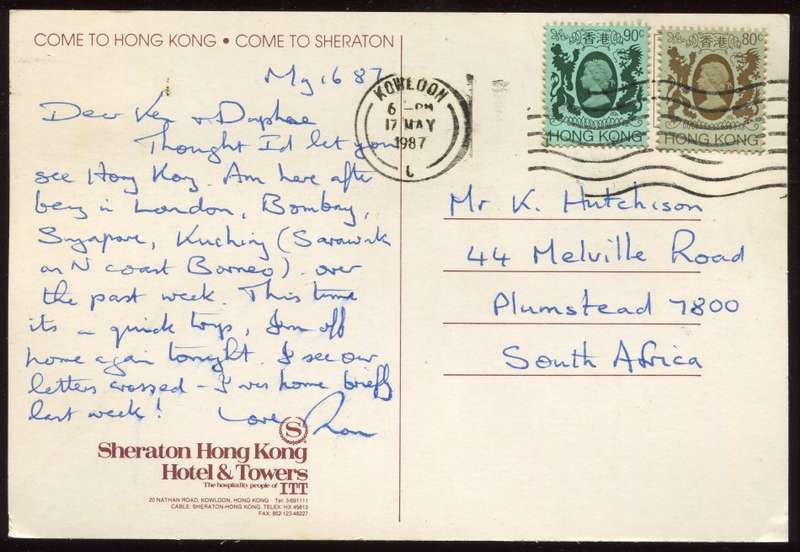 COME TO HONG KONG • COME TO SHERATON
May 16 87
Dear Ken & Daphne
Thought I'd let you
see Hong Kong. Am here after
being in London, Bombay,
Singapore, Kuching (Sarawak
on N coast Borneo) over
the past week. This time
its a quick trip, I'm off
home again tonight. I see our
letters crossed - I was home briefly
last week!
Love
S
Sheraton Hong Kong
Hotel & Towers
The hospitality people of ITT
20 NATHAN ROAD, KOWLOON, HONG KONG Tel: 3-691111
CABLE: SHERATON-HONG KONG. TELEX: HX 45813
FAX: 852-123-48227
KOWLOON
6 - PM
17 MAY
1987
香港 90c
HONG KONG
香港 80c
HONG KONG
Mr K. Hutchison
44 Melville Road
Plumstead 7800
South Africa